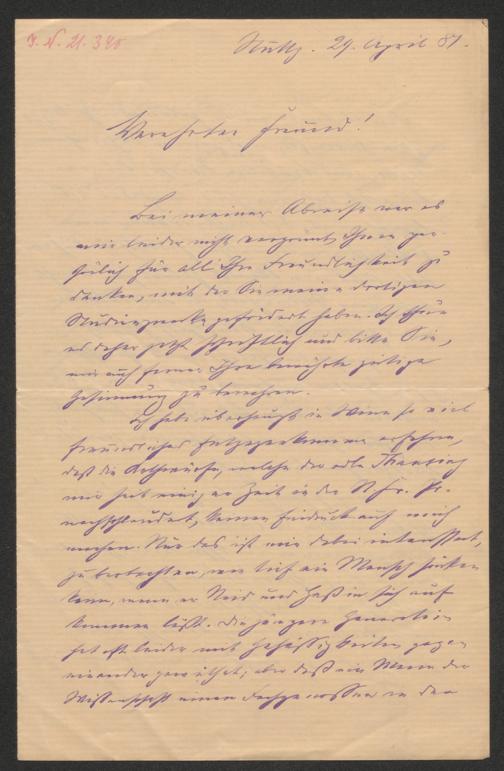 J. N. 21.340
Stuttg. 29. April 81.
Verehrter Freund!
Bei meiner Abreise war es
mir leider nicht vergönnt, Ihnen per-
sönlich für all Ihre Freundlichkeit zu
danken, mit der Sie meine dortigen
Studienzwecke gefördert haben. Ich thue
es daher jetzt schriftlich und bitte Sie,
mir auch ferner Ihre bewährte gütige
Gesinnung zu bewahren.
Ich habe überhaupt in Wien so viel
freundliches Entgegenkommen erfahren,
daß die Kothwürfe, welche der edle Thausing
mir seit einiger Zeit in der N. Fr. Pr.
nachschleudert, keinen Eindruck auf mich
machen. Nur das ist mir dabei interessant,
zu beobachten, wie tief ein Mensch sinken
kann, wenn er Neid und Haß in sich auf
kommen läßt. Die jüngere Generation
hat oft leider mit Gehässigkeiten gegen
einander gewüthet, aber daß ein Mann der
Wissenschaft einen Fachgenossen in den